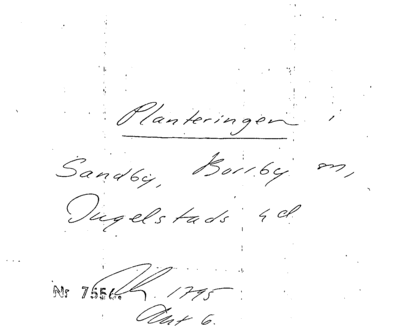 Planteringen i
Sandby, Borrby m,
Ingelstads hd
Nr 7556. 1795
Akt 6.